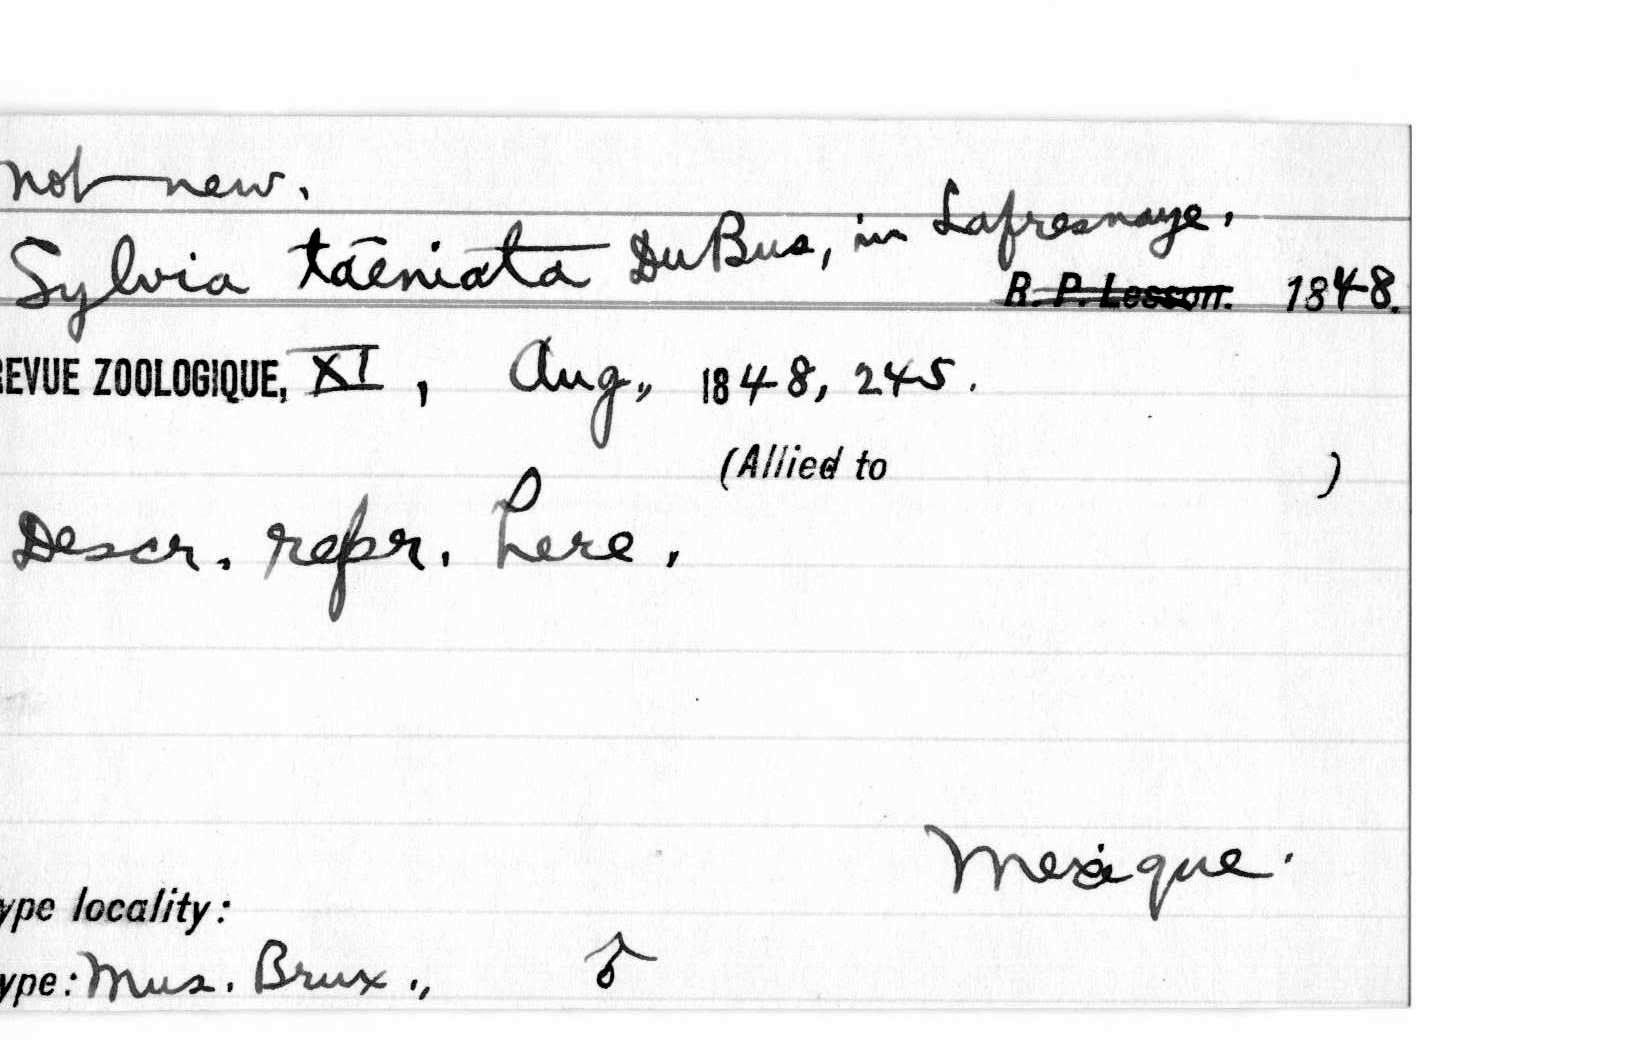 not new.
Sylvia taeniata Du Bus, in Lafresnaye.
R. P. Lesson. 1848.
REVUE ZOOLOGIQUE, XI, Aug., 1848, 245.
(Allied to )
Descr. repr. here.
Mexique.
ype locality:
ype: Mus. Brux., ♂